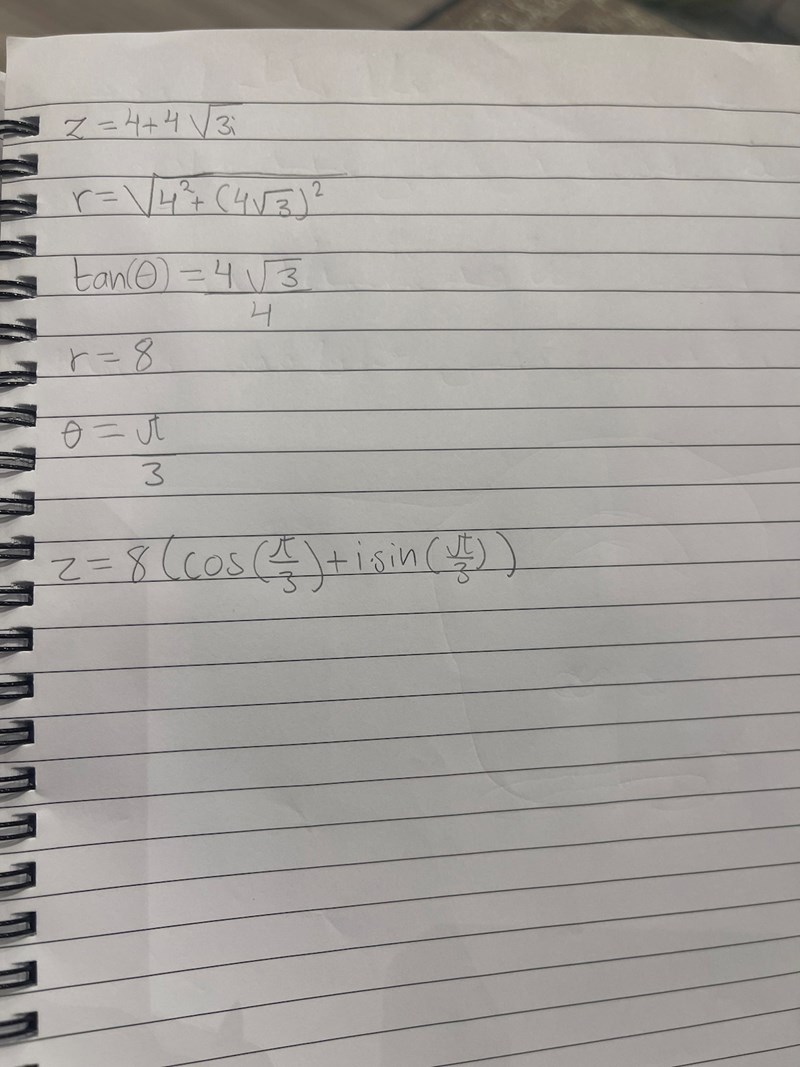 z = 4+4√3i
r = √4²+(4√3)²
tan(θ) = 4√3/4
r = 8
θ = π/3
z = 8(cos(π/3)+i.sin(π/3))